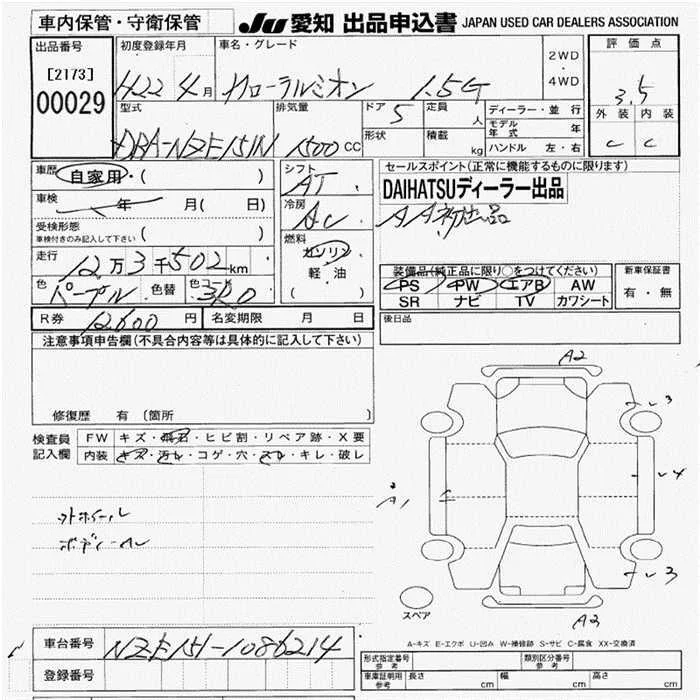 車内保管・守衛保管
JU 愛知 出品申込書 JAPAN USED CAR DEALERS ASSOCIATION
出品番号
[2173]
00029
初度登録年月
H22 年 4 月
車名・グレード
カローラルミオン 1.5G
2WD
・
4WD
評価点
3.5
外装 内装
C C
型式
DBA-NZE151N
排気量
1500 CC
ドア 5
形状
定員 人
積載 kg
ディーラー・並行
モデル年式 年
ハンドル 左・右
車歴 自家用・( )
車検 年 月( 日)
受検形態
車検付きのみ記入して下さい ( )
走行
12万3千502km
色 パープル 色替 色コード
シフト
AT
冷房
AC
燃料
ガソリン
軽・油
( )
セールスポイント(正常に機能するものに限ります)
DAIHATSUディーラー出品
AA初出品
装備品(純正品に限り○をつけてください)
PS PW エアB AW
SR ナビ TV カワシート
新車保証書
有・無
R券 12600 円 名変期限 月 日
後日品
注意事項申告欄(不具合内容等は具体的に記入して下さい)
修復歴 有 〔箇所 〕
検査員
記入欄
FW キズ・飛石・ヒビ割・リペア跡・X要
内装 キズ・汚レ・コゲ・穴・スレ・キレ・破レ
A2
3
4
A1
3
A2
スペア
A-キズ E-エクボ U-凹み W-補修跡 S-サビ C-腐食 XX-交換済
車台番号 NZE151-1086214
登録番号
形式指定番号 参考
類別区分番号 参考
車庫証明用 参考 長さ cm 幅 cm 高さ cm